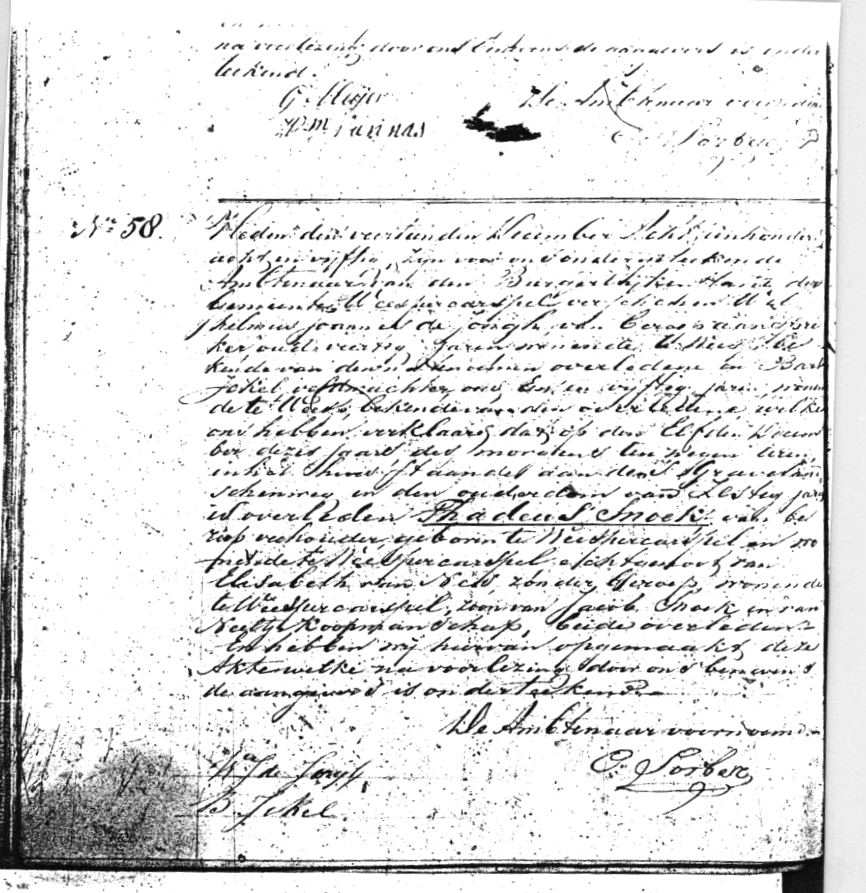 na voorlezing door ons benevens de aangevers is onder
teekend.
G Meijer
De Ambtenaar voornoemd
No 58.
Heden den veertienden December Achttienhonderd
acht en vijftig, zijn voor ons ondergeteekende
Ambtenaar van den Burgerlijken Stand der
Gemeente Weespercarspel verschenen Wil
helmus Joannes de Jongh, van beroep aanspre
ker oud veertig Jaren wonende te Weesp be
kende van den overledene en Bart
Jekel veldwachter, oud een en vijftig jaren, wonen
de te Weesp, bekende van den overledene welke
ons hebben verklaard dat op den Elfden Decem
ber dezes jaars des morgens ten negen uren,
in het huis staande aan den 's Gravelan
schenweg in den ouderdom van Zestig jaren
is overleden Thadeus Snoek, van be
roep veehouder, geboren te Weespercarspel en wo
nende te Weespercarspel echtgenoot van
Elisabeth van Nes, zonder beroep, wonende
te Weespercarspel, zoon van Jacob Snoek en van
Neeltje Koopmanschap, beide overleden
En hebben wij hiervan opgemaakt deze
Akte welke na voorlezing door ons benevens
de aangevers is onderteekend
De Ambtenaar voornoemd
W J de Jongh
C. Sorber
B. Jekel.